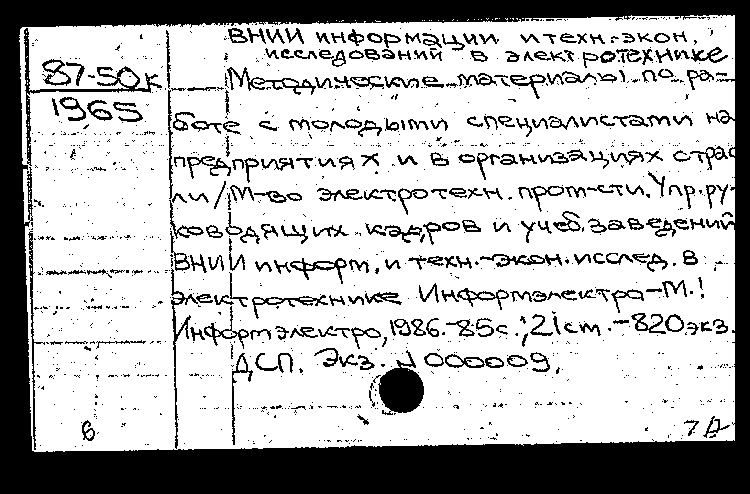 ВНИИ информации и техн.-экон.
исследований в электротехнике
87-50к
1965
Методические материалы по ра-
боте с молодыми специалистами на
предприятиях и в организациях страс
ли/М-во электротехн. пром-сти. Упр. ру-
ководящих кадров и учеб. заведений
ВНИИ информ. и техн.-экон. исслед. в
электротехнике Информэлектро-М.:
Информэлектро, 1986.-85с.; 21 см.-820экз.
ДСП. Экз. N 000009.
6